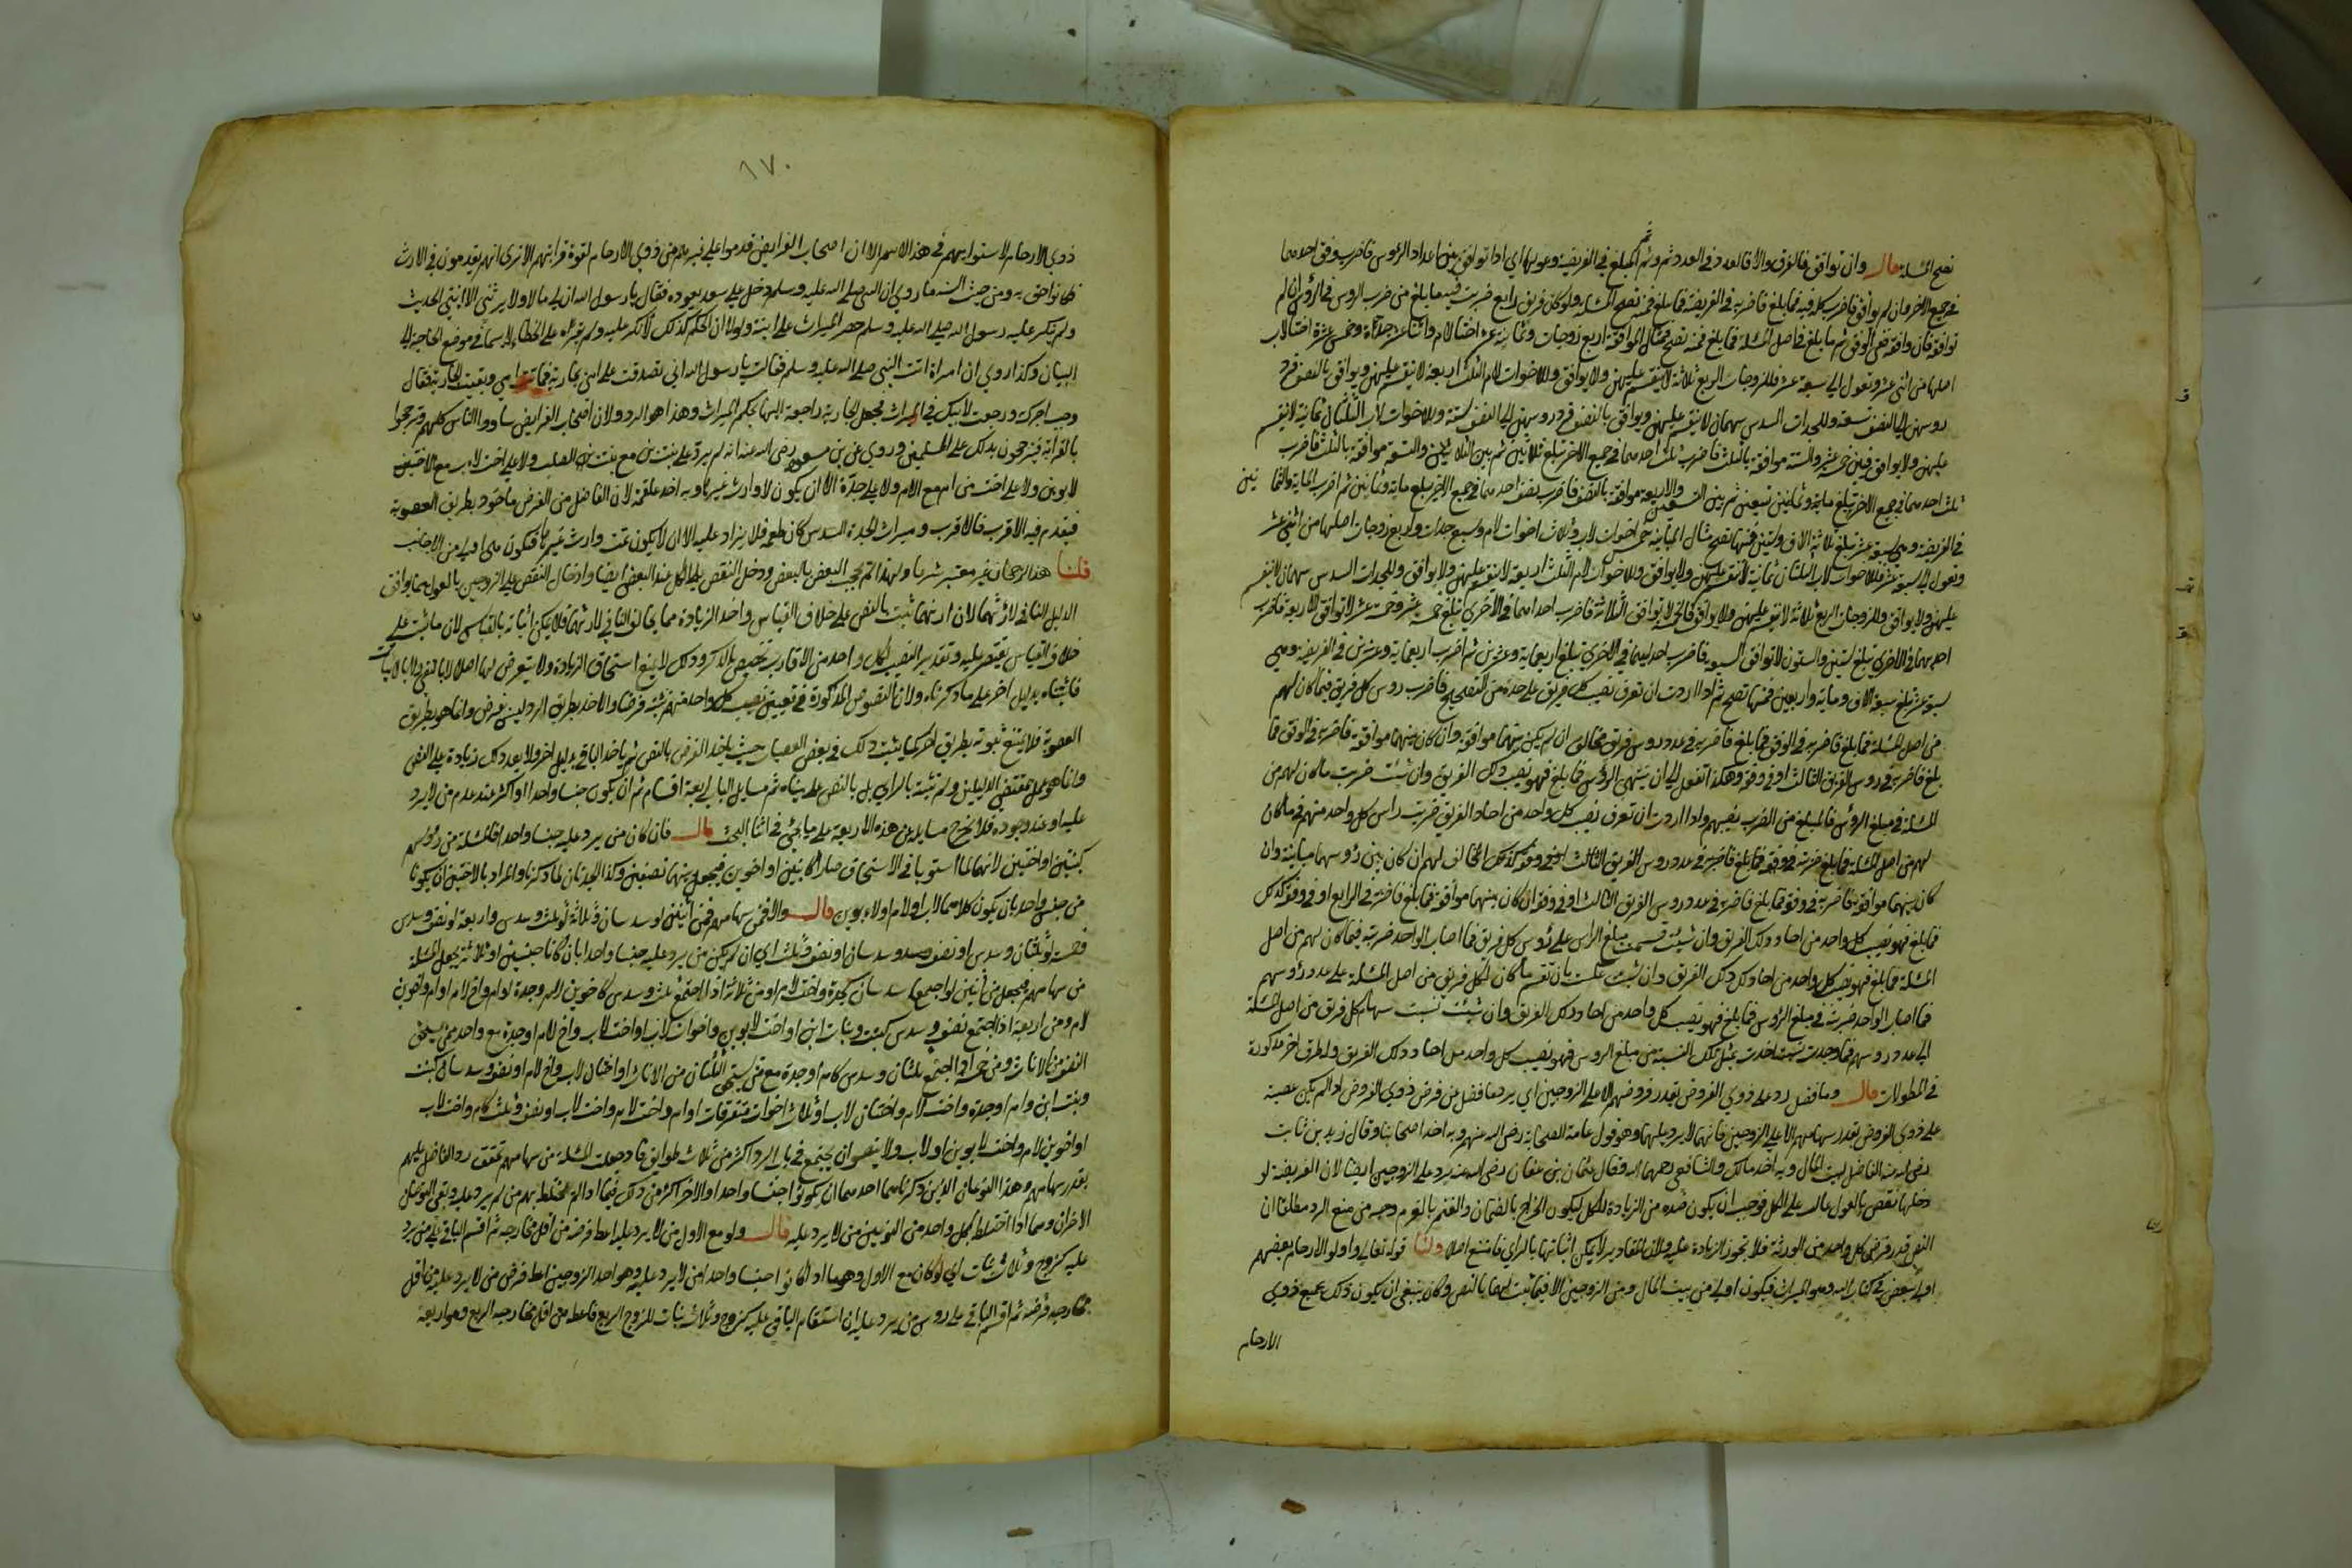 تصح المسئلة قال وان توافق فالوفق والا فالعدد في العدد ثم وثم المبلغ في الفريضة وعولها اي اذا توافق بين اعداد الرؤس فاضرب وفق احدهما
في جميع الاخر وان لم يوافق فاضرب كله فيه فما بلغ فاضربه في الفريضة فما بلغ فمنه تصح المسئلة ولو كان فريق رابع ضربت فيه ما بلغ من ضرب الروس في الرؤس ان لم
توافقه فان وافقه ففي الوفق ثم ما بلغ في اصل المسئلة فما بلغ فمنه تصح فمثال الموافقة اربع زوجات وثمانية عشر اختا لام واثنا عشر جدة وخمس عشرة اختا لاب
اصلها من اثني عشر وتعول الى سبعة عشر فللزوجات الربع ثلاثة لا ينقسم عليهن ولا يوافق وللاخوات لام الثلث اربعة لا ينقسم عليهن ويوافق بالنصف فرد
روسهن الى النصف تسعة وللجدات السدس سهمان لا ينقسم عليهن ويوافق بالنصف فرد روسهن الى النصف ستة وللاخوات لاب الثلثان ثمانية لا ينقسم
عليهن ولا يوافق فبين خمسة عشر والستة موافقة بالثلث فاضرب ثلث احدهما في جميع الاخر تبلغ ثلاثين ثم بين الثلاثين والتسعة موافقة بالثلث فاضرب
ثلث احدهما في جميع الاخر تبلغ تسعين ثم بين التسعين والاربعة موافقة بالنصف فاضرب نصف احدهما في جميع الاخر يبلغ ماية وثمانين ثم اضرب الماية والثما نين
في الفريضة وهي سبعة عشر تبلغ ثلاثة الاف وستين فمنها تصح مثال المباينة خمس اخوات لاب وثلاث اخوات لام وسبع جدات واربع زوجات اصلها من اثني عشر
وتعول الى سبعة عشر فللاخوات لاب الثلثان ثمانية لا ينقسم عليهن ولا يوافق وللاخوات لام الثلث اربعة لا ينقسم عليهن ولا يوافق وللجدات السدس سهمان لا ينقسم
عليهن ولا يوافق وللزوجات الربع ثلاثة لا ينقسم عليهن ولا يوافق فالخمسة لا توافق الثلاثة فاضرب احداهما في الاخرى تبلغ خمسة عشر وخمسة عشر لا توافق الاربعة فاضرب
احديهما في الاخرى تبلغ ستين والستون لا توافق السبعة فاضرب احديهما في الاخرى تبلغ اربعماية وعشرين ثم اضرب اربعماية وعشرين في الفريضة وهي
سبعة عشر تبلغ سبعة الاف وماية واربعين فمنها تصح ثم اذا اردت ان تعرف نصيب كل فريق على حدة من التصحيح فاضرب روس كل فريق فيما كان لهم
من اصل المسئلة فما بلغ فاضربه في الوفق فما بلغ فاضربه في عدد روس فريق مخالف ان لم يكن بينهما موافقة وان كان بينهما موافقة فاضربه في الوفق فما
بلغ فاضربه في روس الفريق الثالث او في وفقه وهكذا تفعل الى ان ينتهي الرؤس فما بلغ فهو نصيب ذلك الفريق وان شئت ضربت ما كان لهم من
المسئلة في مبلغ الرؤس فالمبلغ من الضرب نصيبهم واذا اردت ان تعرف نصيب كل واحد من احاد الفريق ضربت راس كل واحد منهم في ما كان
لهم من اصل المسئلة فما بلغ ضربته في وفقه فما بلغ فاضربه في عدد روس الفريق الثالث المخالف لهم ان كان بين رؤسهما مباينة وان
كان بينهما موافقة فاضربه في وفقه فما بلغ فاضربه في عدد روس الفريق الثالث او في وفقه ان كان بينهما موافقة فما بلغ فاضربه في الرابع او في وفقه كذلك
فما بلغ فهو نصيب كل واحد من احاد ذلك الفريق وان شئت قسمت مبلغ الراس على رؤس كل فريق فما اصاب الواحد ضربته فيما كان لهم من اصل
المسئلة فما بلغ فهو نصيب كل واحد من احاد ذلك الفريق وان شئت عكست بان تقسم ما كان لكل فريق من اصل المسئلة على عدد رؤسهم
فما اصاب الواحد ضربته في مبلغ الرؤس فما بلغ فهو نصيب كل واحد من احاد ذلك الفريق وان شئت نسبت سهام كل فريق من اصل المسئلة
الى عدد روسهم فما وجدت نسبة اخذت بمثل تلك النسبة من مبلغ الروس فهو نصيب كل واحد من احاد ذلك الفريق وله طرق اخر مذكورة
في المطولات قال وما فضل رد على ذوي الفروض بقدر فروضهم الا على الزوجين اي يرد ما فضل عن فرض ذوي الفروض اذا لم يكن عصبة
على ذوي الفروض بقدر سهامهم الا على الزوجين فانهما لا يرد عليهما وهو قول عامة الصحابة رضي الله عنهم وبه اخذ اصحابنا وقال زيد بن ثابت
رضي الله عنه الفاضل لبيت المال وبه اخذ مالك والشافعي رحمهما الله وقال عثمان بن عفان رضي الله عنه يرد على الزوجين ايضا لان الفريضة لو
دخلها نقص بالعول عالت على الكل فوجب ان يكون ضده من الزيادة للكل ليكون الخراج بالضمان والغنم بالغرم وجه من منع الرد مطلقا ان
النص قدر فرض كل واحد من الورثة فلا تجوز الزيادة عليه ولان المقادير لا يمكن اثباتها بالراي فامتنع اصلا ولنا قوله تعالى واولو الارحام بعضهم
اولى ببعض في كتاب الله وهو الميراث فيكون اولى من بيت المال ومن الزوجين الا فيما ثبت لهما بالنص وكان ينبغي ان يكون ذلك لجميع ذوي
الارحام
١٧٠
ذوي الارحام لاستوائهم في هذا الاسم الا ان اصحاب الفرايض قدموا على غيرهم من ذوي الارحام لقوة قرابتهم الا ترى انهم يقدمون في الارث
فكانوا احق به ومن حيث السنة ما روي ان النبي صلى الله عليه وسلم دخل على سعد يعوده فقال يا رسول الله ان لي مالا ولا يرثني الا ابنتي الحديث
ولم ينكر عليه رسول الله صلى الله عليه وسلم حصر الميراث على ابنته ولولا ان الحكم كذلك لانكر عليه ولم يقره على الخطاء لا سيما في موضع الحاجة الى
البيان وكذا روي ان امراة اتت النبي صلى الله عليه وسلم فقالت يا رسول الله اني تصدقت على امي بجارية فماتت امي وبقيت الجارية فقال
وجب اجرك ورجعت اليك في الميراث فجعل الجارية راجعة اليها بحكم الميراث وهذا هو الرد ولان اصحاب الفرايض ساووا الناس كلهم وترجحوا
بالقرابة فيترجحون بذلك على المسلمين وروي عن بن مسعود رضي الله عنه انه لم يرد على بنت بن مع بنت من الصلب ولا على اخت لاب مع الاخت
لابوين ولا على اخت من ام مع الام ولا على جدة الا ان يكون لا وارث غيرها وبه اخذ علقمة لان الفاضل من الفرض ماخوذ بطريق العصوبة
فيقدم فيه الاقرب فالاقرب وميراث الجدة السدس كان طعمة فلا يزاد عليه الا ان لا يكون ثمت وارث غيرها فتكون هي اولى من الاجانب
قلنا هذا الرجحان غير معتبر شرعا ولهذا لم يحجب البعض بالبعض ودخل النقص على الكل عند البعض ايضا وادخال النقص على الزوجين بالعول مما يوافق
الدليل النافي لارثهما لان ارثهما ثبت بالنص على خلاف القياس واخذ الزيادة مما يخالف النافي لارثهما فلا يمكن اثباته بالقياس لان ما ثبت على
خلاف القياس يقتصر عليه وتقدير النصيب لكل واحد من الاقارب تخصيص بالذكر وذلك لا يمنع استحقاق الزيادة ولا يتعرض لها اصلا لا بالنفي ولا بالاثبات
فاثبتناه بدليل اخر على ما ذكرناه ولان النصوص المذكورة في تعيين نصيب كل واحد منهم مثبتة فرضا والاخذ بطريق الرد ليس بفرض وانما هو بطريق
العصوبة فلا يمتنع ثبوته بطريق اخر كما يثبت ذلك في بعض العصبات حيث ياخذ الفرض بالنص ثم ياخذ الباقي بدليل اخر ولا يعد ذلك زيادة على النص
وانما هو عمل بمقتضى الدليلين ولم نثبته بالراي بل بالنص على ما بيناه ثم مسايل الباب اربعة اقسام ثم ان يكون جنسا واحدا او اكثر عند عدم من لا يرد
عليه او عند وجوده فلا تخرج مسايله عن هذه الاربعة على ما يجئ في اثنا البحث قال فان كان من يرد عليه جنسا واحدا فالمسئلة من رؤسهم
كبنتين او اختين لانهما لما استويا في الاستحقاق صارا كابنين او اخوين فيجعل بينهما نصفين وكذا الجدتان لما ذكرنا والمراد بالاختين ان يكونا
من جنس واحد بان يكون كلاهما لاب او لام او لابوين قال والا فمن سهامهم فمن اثنين لو سدسان وثلاثة لو ثلث وسدس واربعة لو نصف وسدس
وخمسة لو ثلثان وسدس او نصف وسدسان او نصف وثلث اي ان لم يكن من يرد عليه جنسا واحدا بان كانا جنسين او ثلاثة يجعل المسئلة
من سهامهم فيجعل من اثنين لو اجتمعا سدسان كجدة واخت لام او من ثلاثة اذا اجتمع ثلث وسدس كاخوين لام وجدة او ام واخ لام او ام واخوين
لام ومن اربعة اذا اجتمع نصف وسدس كبنت وبنت ابن او اخت لابوين واخوات لاب او اخت لاب واخ لام او جدة مع واحد ممن يستحق
النصف من الاناث ومن خمسة اذا اجتمع ثلثان وسدس كام او جدة مع من يستحق الثلثان من الاناث او اختان لاب واخ لام او نصف وسدسان كبنت
وبنت ابن وام او جدة واخت لام واختان لاب او ثلاث اخوات متفرقات او ام واخت لام واخت لاب او نصف وثلث كام واخت لاب
او اخوين لام واخت لابوين او لاب ولا يتصور ان يجتمع في باب الرد اكثر من ثلاث طوايف فاذا جعلت المسئلة من سهامهم تحقق رد الفاضل عليهم
بقدر سهامهم وهذا النوعان الذين ذكرناهما احدهما ان يكونوا جنسا واحدا والاخر اكثر من ذلك فيما اذا لم يختلط بهم من لم يرد عليه وبقي النوعان
الاخران وهما اذا اختلط بكل واحد من النوعين من لا يرد عليه قال ولو مع الاول من لا يرد عليه اعط فرضه من اقل مخارجه ثم اقسم الباقي على من يرد
عليه كزوج وثلاث بنات اي لو كان مع الاول وهو ما اذا كانوا جنسا واحدا من لا يرد عليه وهو احد الزوجين اعط فرض من لا يرد عليه من اقل
مخارج فرضه ثم اقسم الباقي على روس من يرد عليه ان استقام الباقي عليه كزوج وثلاث بنات للزوج الربع فاعطه من اقل مخارجه الربع وهو اربعة